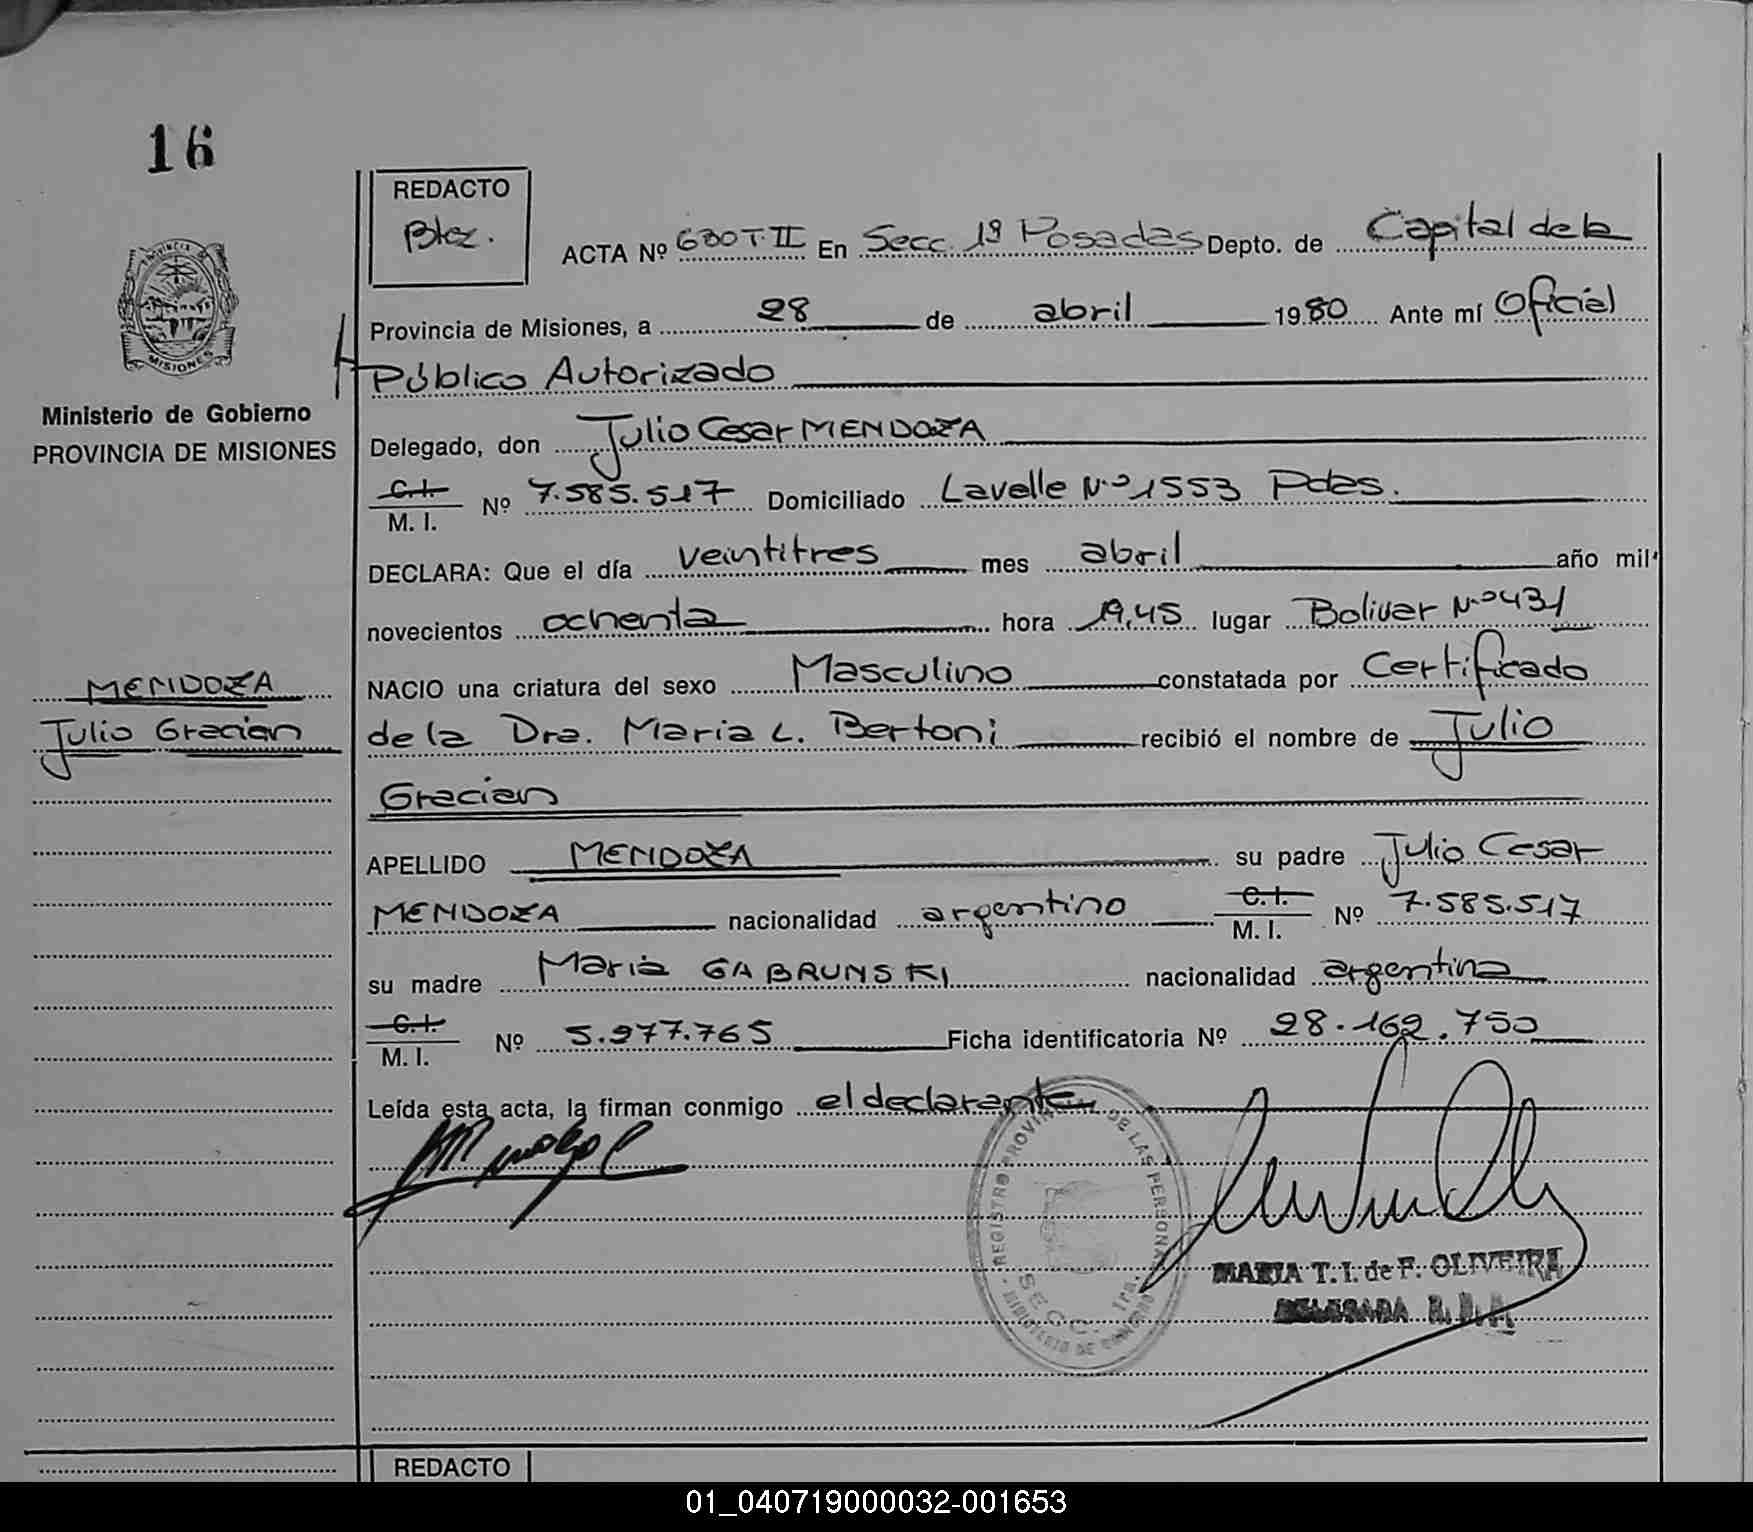 16
REDACTO
ACTA Nº 680 T. II En Secc. 1ª Posadas Depto. de Capital de la
PROVINCIA
MISIONES
Provincia de Misiones, a 28 de abril 1980 Ante mí Oficial
Público Autorizado
Ministerio de Gobierno
PROVINCIA DE MISIONES
Delegado, don Julio Cesar MENDOZA
C. I.
M. I. Nº 7.585.517 Domiciliado Lavalle Nº 1553 Pdas.
DECLARA: Que el día veintitres mes abril año mil
novecientos ochenta hora 19,45 lugar Bolivar Nº 431
MENDOZA
Julio Gracian
NACIO una criatura del sexo Masculino constatada por Certificado
de la Dra. Maria L. Bertoni recibió el nombre de Julio
Gracian
APELLIDO MENDOZA su padre Julio Cesar
MENDOZA nacionalidad argentino C. I.
M. I. Nº 7.585.517
su madre Maria GABRUNSKI nacionalidad argentina
C. I.
M. I. Nº 5.977.765 Ficha identificatoria Nº 28.162.750
Leída esta acta, la firman conmigo el declarante
REGISTRO PROVINCIAL DE LAS PERSONAS
SECC. 1ra.
MINISTERIO DE GOBIERNO
MARIA T. I. de F. OLIVEIRA
DELEGADA
REDACTO
01_040719000032-001653